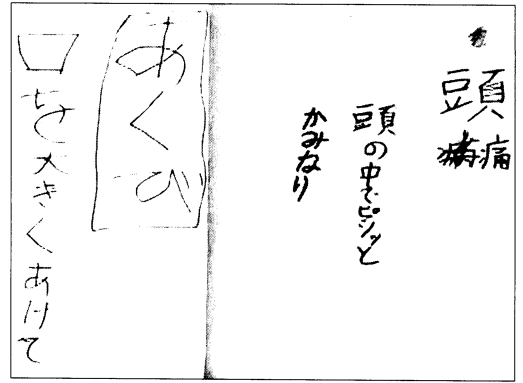 頭
痛
頭の中でピシッと
かみなり
あくび
口を大きくあけて